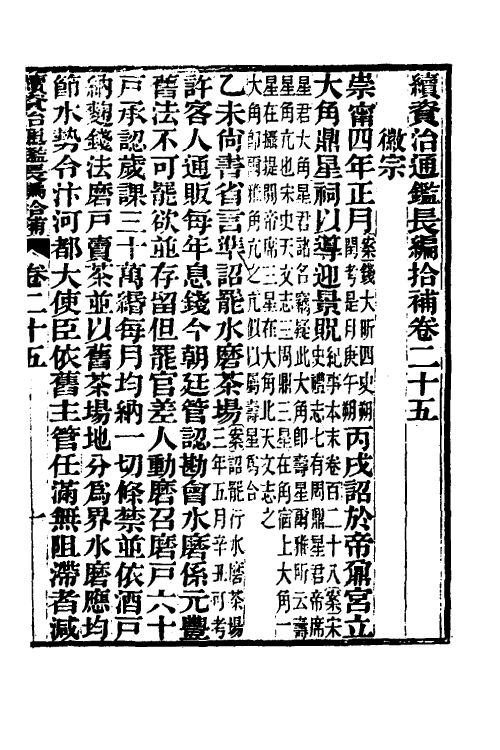 續資治通鑑長編拾補卷二十五
徽宗
崇甯四年正月案錢大昕四史朔閏考是月庚午朔丙戌詔於帝鼐宮立
大角鼎星祠以導迎景貺紀事本末卷百二十八案宋史禮志七有周鼎星君帝席
星君大角星君諸名竊疑此大角即壽星爾雅所云壽
星角亢也宋史天文志三周鼎三星在角宿上大角一
星在攝提間帝席三星在大角北天文志之
大角即爾雅角亢之亢似以屬壽星爲合
乙未尚書省言準詔罷水磨茶場案詔罷行水磨茶場三年五月辛丑可考
許客人通販每年息錢今朝廷管認勘會水磨係元豐
舊法不可罷欲並存留但罷官差人動磨召磨戶六十
戶承認歲課三十萬緡每月均納一切條禁並依酒戶
納麴錢法磨戶賣茶並以舊茶場地分爲界水磨應均
節水勢令汴河都大使臣依舊主管任滿無阻滯者減
續資治通鑑長編拾補 卷二十五 一